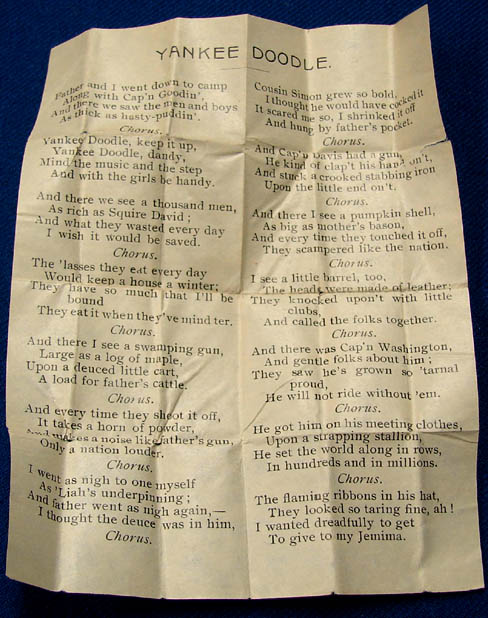 YANKEE DOODLE.
Father and I went down to camp
Along with Cap'n Goodin',
And there we saw the men and boys
As thick as hasty-puddin'.
Chorus.
Yankee Doodle, keep it up,
Yankee Doodle, dandy,
Mind the music and the step
And with the girls be handy.
And there we see a thousand men,
As rich as Squire David;
And what they wasted every day
I wish it would be saved.
Chorus.
The 'lasses they eat every day
Would keep a house a winter;
They have so much that I'll be
bound
They eat it when they've mind ter.
Chorus.
And there I see a swamping gun,
Large as a log of maple,
Upon a deuced little cart,
A load for father's cattle.
Chorus.
And every time they shoot it off,
It takes a horn of powder,
And makes a noise like father's gun,
Only a nation louder.
Chorus.
I went as nigh to one myself
As 'Liah's underpinning;
And father went as nigh again,—
I thought the deuce was in him,
Chorus.
Cousin Simon grew so bold,
I thought he would have cocked it
It scared me so, I shrinked it off
And hung by father's pocket.
Chorus.
And Cap'n Davis had a gun,
He kind of clap't his hand on't,
And stuck a crooked stabbing iron
Upon the little end on't.
Chorus.
And there I see a pumpkin shell,
As big as mother's bason,
And every time they touched it off,
They scampered like the nation.
Chorus.
I see a little barrel, too,
The heads were made of leather;
They knocked upon't with little
clubs,
And called the folks together.
Chorus.
And there was Cap'n Washington,
And gentle folks about him;
They saw he's grown so 'tarnal
proud,
He will not ride without 'em.
Chorus.
He got him on his meeting clothes,
Upon a strapping stallion,
He set the world along in rows,
In hundreds and in millions.
Chorus.
The flaming ribbons in his hat,
They looked so taring fine, ah!
I wanted dreadfully to get
To give to my Jemima.